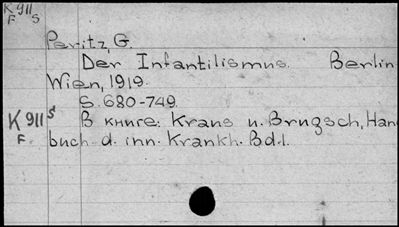 K 911 S
F
Peritz, G.
Der Infantilismus. Berlin
Wien, 1919.
S. 680-749.
K 911 S В книге: Kraus u. Brugsch, Han
F. buch d. inn. Krankh. Bd.I.